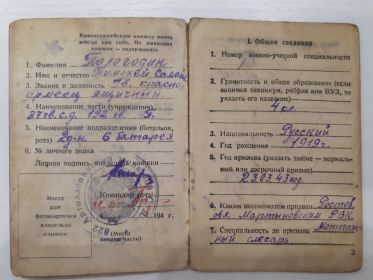 Красноармейскую книжку иметь
всегда при себе. Не имеющих
книжек — задерживать
1. Фамилия Пологодин
2. Имя и отчество Тимофей
3. Звание и должность Гв. красно-
армеец ящичный
4. Наименование части (учреждения)
87 гв. с.д. 192 гв.
5. Наименование подразделения (батальон,
рота) 2 д-н 6 батарея
6. № личного знака
Личная подпись
Командир
194 г.
Место
для
фотокарточки
владельца
книжки
(Место
печати части)
I. Общие сведения
1. Номер военно-учетной специальности
2. Грамотность и общее образование (если
окончил техникум, рабфак или ВУЗ, то
указать его название)
4 кл.
3. Национальность Русский
4. Год рождения 1919 г.
5. Год призыва (указать также — нормаль-
ный или досрочный призыв)
23.03.43 год
6. Каким военкоматом призван Ростов.
обл. Мартыновским РВК
7. Специальность до призыва Монтаж-
ный слесарь
3